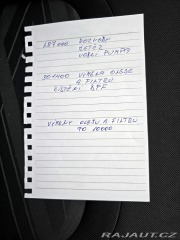 189000 ROZVODY
ŘETĚZ
VODNÍ PUMPA
201400 VÝMĚNA OLEJE
A FILTRU
ČIŠTĚNÍ DPF
VÝMĚNY OLEJŮ A FILTRU
PO 10000
RAJAUT.CZ